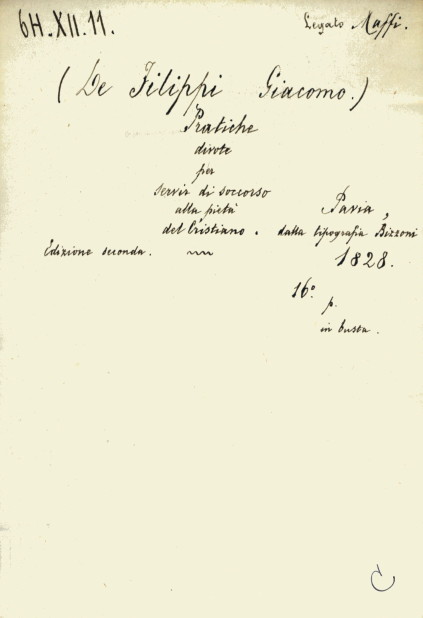 6H.XII.11.
Legato Maffi.
(De Filippi Giacomo.)
Pratiche
divote
per
servir di soccorso
alla pietà
del Cristiano.
Edizione seconda.
Pavia,
dalla tipografia Bizzoni
1828.
16º p.
in busta.
C